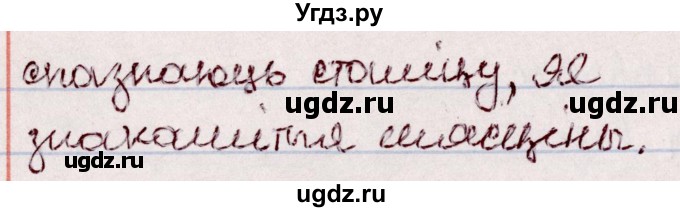 Угдз.ру
спазнаюць сталіцу, яе
ugdz.ru ugdz.ru
знакамітыя мясціны.
ugdz.ru ugdz.ru
ugdz.ru